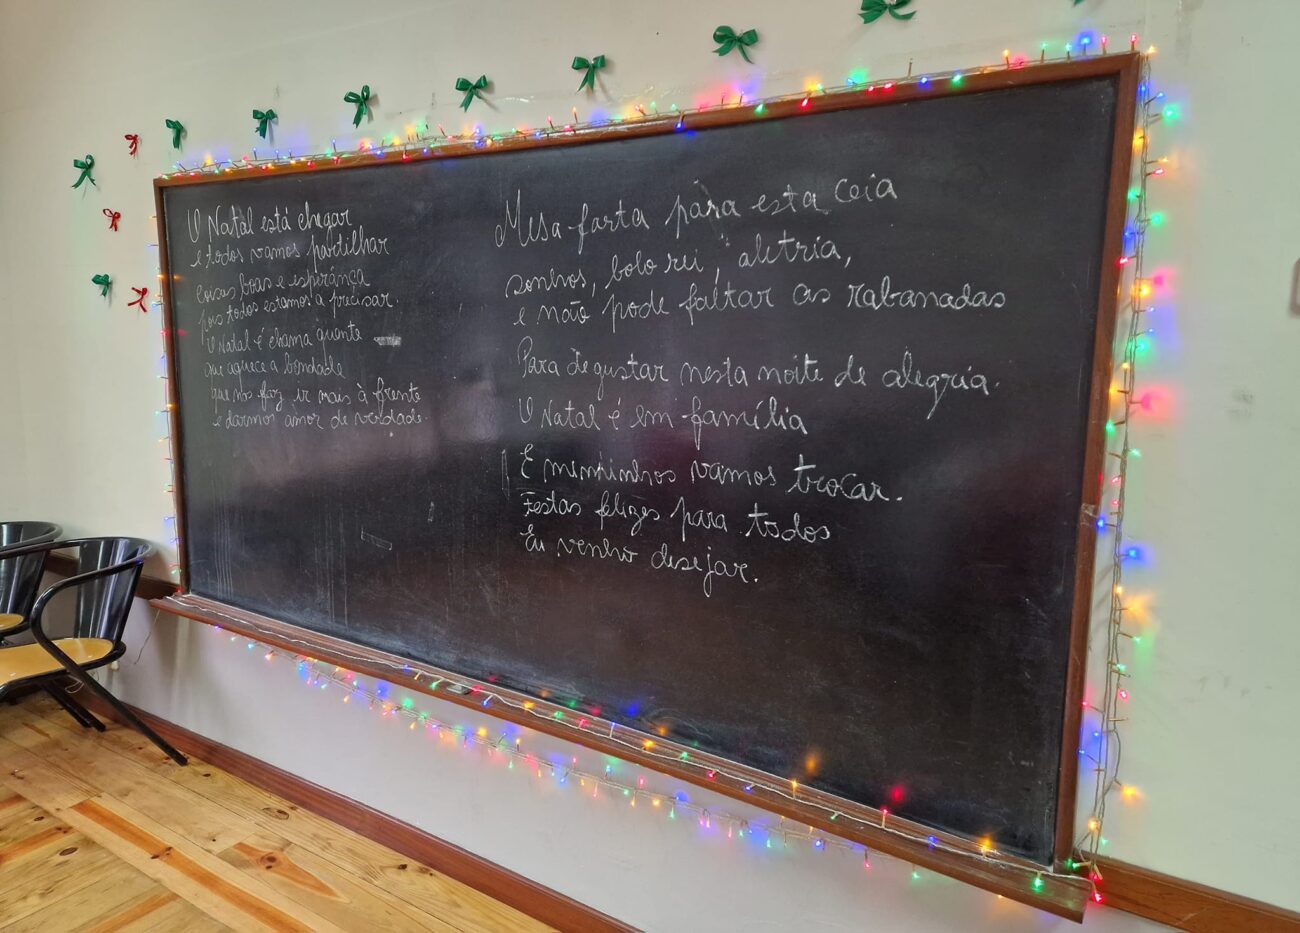 O Natal está chegar
e todos vamos partilhar
Coisas boas e esperança
pois todos estamos a precisar.
O Natal é chama quente
que aquece a bondade
que nos faz ir mais à frente
e darmos amor de verdade
Mesa farta para esta ceia
sonhos, bolo rei, aletria,
e não pode faltar as rabanadas
Para degustar nesta noite de alegria.
O Natal é em família
E miminhos vamos trocar.
Festas felizes para todos
Eu venho desejar.